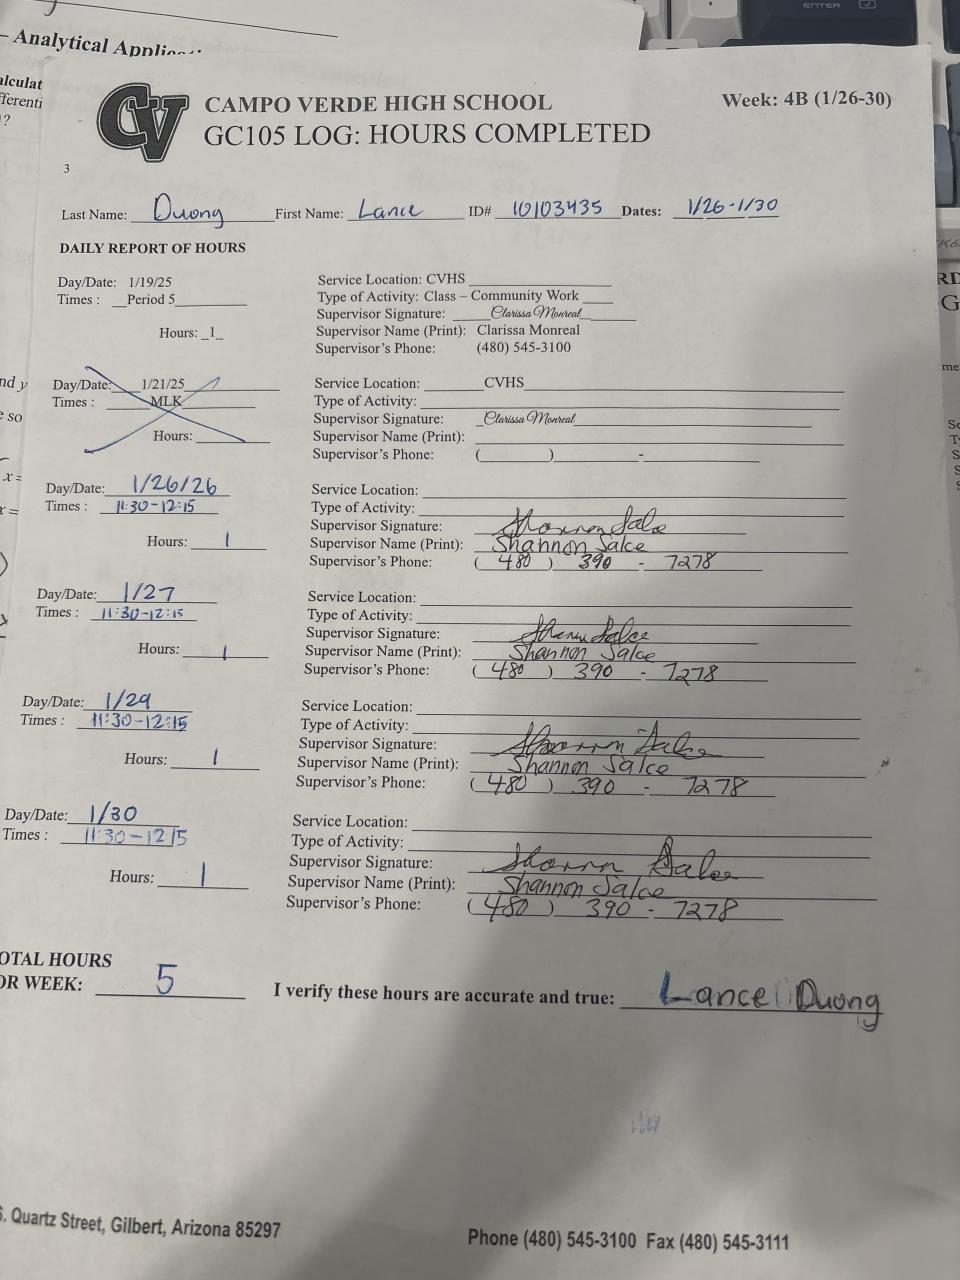 – Analytical Applic
alculat
fferenti
?
CV
CAMPO VERDE HIGH SCHOOL
Week: 4B (1/26-30)
GC105 LOG: HOURS COMPLETED
3
Last Name: Duong First Name: Lance ID# 10103435 Dates: 1/26-1/30
DAILY REPORT OF HOURS
Day/Date: 1/19/25
Times : Period 5
Hours: 1
Service Location: CVHS
Type of Activity: Class – Community Work
Supervisor Signature: Clarissa Monreal
Supervisor Name (Print): Clarissa Monreal
Supervisor's Phone: (480) 545-3100
Day/Date: 1/21/25
Times : MLK
Hours:
Service Location: CVHS
Type of Activity:
Supervisor Signature: Clarissa Monreal
Supervisor Name (Print):
Supervisor's Phone: ( ) -
Day/Date: 1/26/26
Times : 11:30-12:15
Hours: 1
Service Location:
Type of Activity:
Supervisor Signature: Shannon Salce
Supervisor Name (Print): Shannon Salce
Supervisor's Phone: (480) 390 - 7278
Day/Date: 1/27
Times : 11:30-12:15
Hours: 1
Service Location:
Type of Activity:
Supervisor Signature: Shannon Salce
Supervisor Name (Print): Shannon Salce
Supervisor's Phone: (480) 390 - 7278
Day/Date: 1/29
Times : 11:30-12:15
Hours: 1
Service Location:
Type of Activity:
Supervisor Signature: Shannon Salce
Supervisor Name (Print): Shannon Salce
Supervisor's Phone: (480) 390 - 7278
Day/Date: 1/30
Times : 11:30-12:15
Hours: 1
Service Location:
Type of Activity:
Supervisor Signature: Shannon Salce
Supervisor Name (Print): Shannon Salce
Supervisor's Phone: (480) 390 - 7278
OTAL HOURS
OR WEEK: 5
I verify these hours are accurate and true: Lance Duong
S. Quartz Street, Gilbert, Arizona 85297
Phone (480) 545-3100 Fax (480) 545-3111
nd y
e so
x =
x =
ENTER
RD
G
me